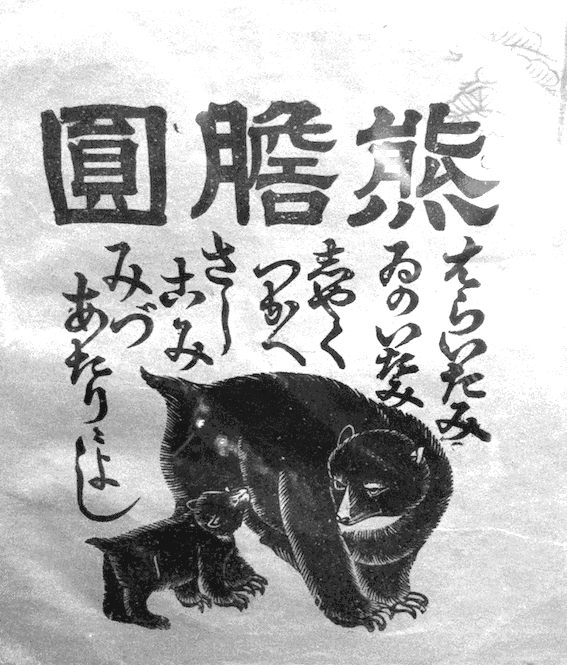 熊膽圓
はらいたみ
ゐのいたみ
志やく
つかへ
さし
こみ
みづ
あたりによし